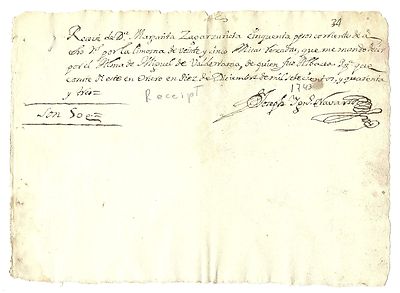 34
Recivi de Dª. Margarita Zagarzurieta Cinquenta pesos corrientes de a
ocho Rˢ por la limosna de veinte y cinco Misas rezadas, que me mando decir
por el Alma de Miguel de Valderrama, de quien fue Albacea, y pª. que
conste di este en Oruro en diez de Diciembre de mil setecientos, y quarenta
y tres
1743
Son 50 ps
Receipt
Joseph Ignº. Navarro